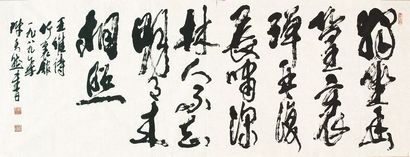 独坐幽
篁里
弹琴复
长啸深
林人不知
明月来
相照
王维诗
竹里馆
一九八九年